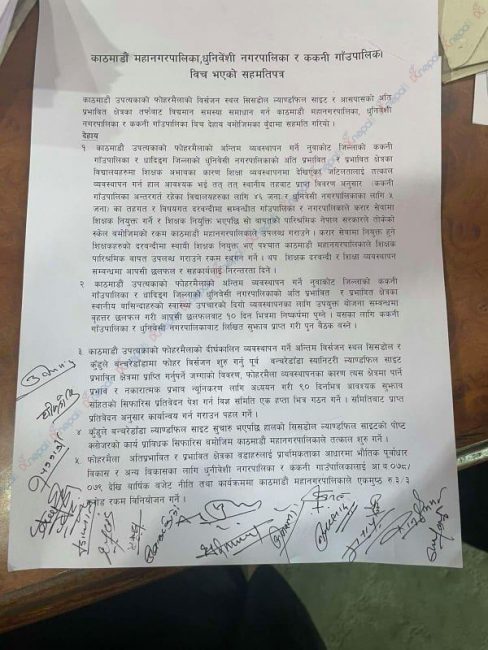 काठमाडौं महानगरपालिका,धुनिवेंशी नगरपालिका र ककनी गाउँपालिका
विच भएको सहमतिपत्र
काठमाडौं उपत्यकाको फोहरमैलाको विर्सजन स्थल सिसडोल ल्याण्डफिल साइट र आसपासको अति
प्रभावित क्षेत्रका तर्फवाट विद्यमान समस्या समाधान गर्न काठमाडौं महानगरपालिका, धुनिवेशी
नगरपालिका र ककनी गाउँपालिका विच देहाय वमोजिमका बुँदामा सहमति गरियो ।
देहाय
१ काठमाडौं उपत्यकाको फोहरमैलाको अन्तिम व्यवस्थापन गर्ने नुवाकोट जिल्लाको ककनी
गाउँपालिका र धादिङ्ग जिल्लाको धुनिवेशी नगरपालिकाका अति प्रभावित र प्रभावित क्षेत्रका
विद्यालयहरुमा शिक्षक अभावका कारण शिक्षा व्यवस्थापनमा देखिएका जटिलतालाई तत्काल
व्यवस्थापन गर्न हाल आवश्यक भई तत् तत् स्थानीय तहबाट प्राप्त विवरण अनुसार (ककनी
गाउँपालिका अन्तरगत रहेका विद्यालयहरुका लागि ४६ जना र धुनिवेशी नगरपालिकाका लागि ४
जना) का तहगत र विषयगत दरवन्दीमा सम्वन्धीत गाउँपालिका र नगरपालिकाले करार सेवामा
शिक्षक नियुक्त गर्ने र शिक्षक नियुक्ति भएपछि सो वापतको पारिश्रमिक नेपाल सरकारले तोकेको
स्केल वमोजिमको रकम काठमाडौं महानगरपालिकाले उपलब्ध गराउने । करार सेवामा नियुक्त हुने
शिक्षकहरुको दरवन्दीमा स्थायी शिक्षक नियुक्त भए पश्चात काठमाडौं महानगरपालिकाले शिक्षक
पारिश्रमिक वापत उपलब्ध गराउने रकम स्थगन गर्ने । थप शिक्षक दरवन्दी र शिक्षा व्यवस्थापन
सम्वन्धमा आपसी छलफल र सहकार्यलाई निरन्तरता दिने ।
२ काठमाडौं उपत्यकाको फोहरमैलाको अन्तिम व्यवस्थापन गर्ने नुवाकोट जिल्लाको ककनी
गाउँपालिका र धादिङ्ग जिल्लाको धुनिवेशी नगरपालिकाको अति प्रभावित र प्रभावित क्षेत्रका
स्थानीय वासिन्दाहरुको स्वास्थ्य उपचारको दिगो व्यवस्थापनका लागि उपयुक्त योजना सम्वन्धमा
बृहत्तर छलफल गरी आपसी छलफलवाट १० दिन भित्रमा निष्कर्षमा पुग्ने । यसका लागि ककनी
गाउँपालिका र धुनिवेशी नगरपालिकावाट लिखित सुझाव प्राप्त गरी पुन बैठक बस्ने ।
३ काठमाडौं उपत्यकाको फोहरमैलाको दीर्घकालिन व्यवस्थापन गर्न विर्सजन स्थल सिसडोल र
कुँडुले बन्चरेडाँडामा फोहर विर्सजन शुरु गर्नु पूर्व बन्चरेडाँडा स्यानिटरी ल्याण्डफिल साइट
प्रभावित क्षेत्रमा प्राप्ति गर्नुपर्ने जग्गाको विवरण, फोहरमैला व्यवस्थापनका कारण त्यस क्षेत्रमा पार्ने
प्रभाव र नकारात्मक प्रभाव न्यूनिकरण लागि अध्ययन गरी ९० दिनभित्र आवश्यक सुझाव
सहितको सिफारिस प्रतिवेदन पेश गर्न विज्ञ समिति एक हप्ता भित्र गठन गर्ने । समितिवाट प्राप्त
प्रतिवेदन अनुसार कार्यान्वय गर्न गराउन पहल गर्ने ।
४ कुँडुले बन्चरेडाँडा ल्याण्डफिल साइट सुचारु भएपछि हालको सिसडोल ल्याण्डफिल साइटको पोष्ट
क्लोजरको कार्य प्राविधिक सिफारिस वमोजिम काठमाडौं महानगरपालिकाले तत्काल शुरु गर्ने ।
५ फोहरमैला अतिप्रभावित र प्रभावित क्षेत्रका वडाहरुलाई प्राथमिकताका आधारमा भौतिक पूर्वाधार
विकास र अन्य विकासका लागि धुनिवेशी नगरपालिका र ककनी गाउँपालिकालाई आ व ०७८/
०७९ देखि वार्षिक वजेट नीति तथा कार्यक्रममा काठमाडौं महानगरपालिकाले एकमुष्ठ रु.३/३
करोड रकम विनियोजन गर्ने ।